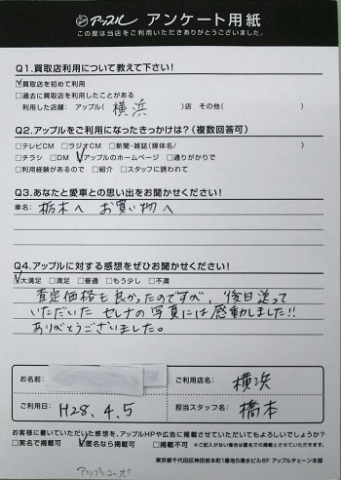 アップル アンケート用紙
この度は当店をご利用いただきありがとうございました。
Q1.買取店利用について教えて下さい!
□買取店を初めて利用
□過去に買取店を利用したことがある
利用した店舗: アップル( 横浜 )店 その他( )
Q2.アップルをご利用になったきっかけは?(複数回答可)
□テレビCM □ラジオCM □新聞・雑誌(媒体名/ )
□チラシ □DM □アップルのホームページ □通りがかりで
□利用経験があるので □紹介 □スタッフに誘われて
Q3.あなたと愛車との思い出をお聞かせください!
車名: 栃木へ お買い物へ
Q4.アップルに対する感想をぜひお聞かせください!
□大満足 □満足 □普通 □もう少し □不満
査定価格も良かったのですが、後日送って
いただいた セレナの写真には感動しました!!
ありがとうございました。
お名前:
ご利用店名: 横浜
ご利用日: H28.4.5
担当スタッフ名: 橋本
お客様に書いていただいた感想を、アップルHPや広告に掲載させていただいてもよろしいでしょうか?
□実名で掲載可 □匿名なら掲載可 □掲載不可 ※ご記入がない場合は匿名での掲載とさせていただきます。
東京都千代田区神田岩本町1番地5清水ビル6F アップルチェーン本部